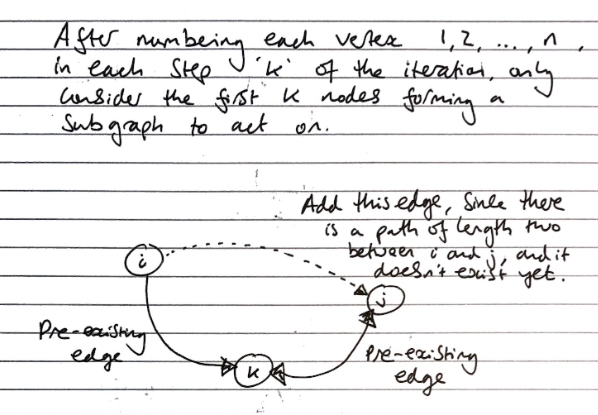 After numbering each vertex 1, 2, ..., n,
in each step 'k' of the iteration, only
consider the first k nodes forming a
subgraph to act on.
Add this edge, since there
is a path of length two
between i and j, and it
doesn't exist yet.
i
j
Pre-existing
edge
k
Pre-existing
edge